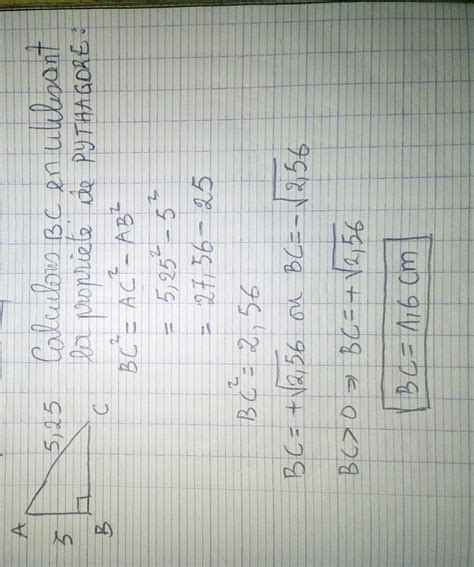 A
5,25
5
B
C
Calculons BC en utilisant
la propriété de PYTHAGORE :
BC² = AC² - AB²
= 5,25² - 5²
= 27,56 - 25
BC² = 2,56
BC = +√2,56 ou BC = -√2,56
BC > 0 ⇒ BC = +√2,56
BC = 1,6 cm